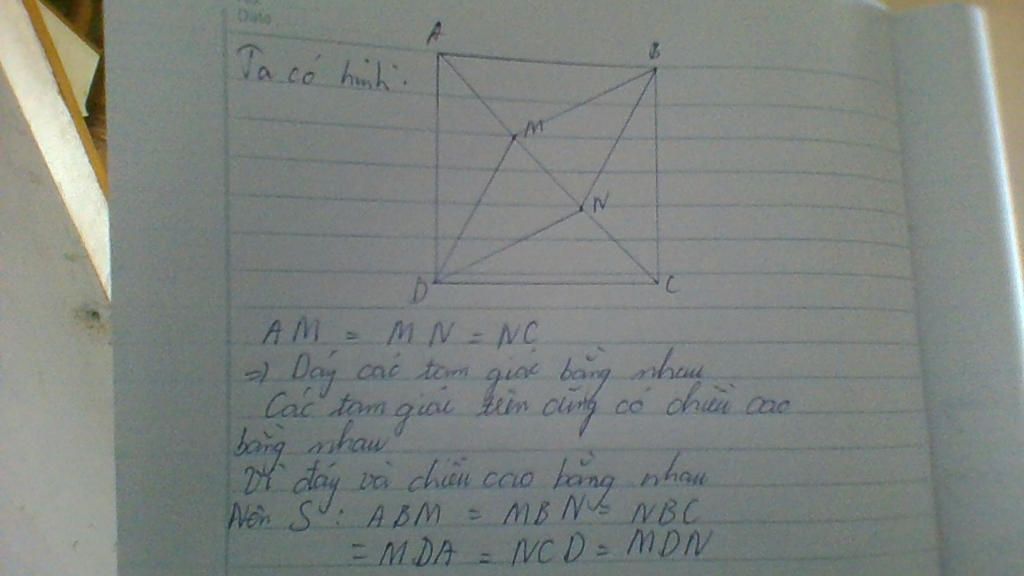 Date
Ta có hình:
A
B
M
N
D
C
AM = MN = NC
=) Đáy các tam giác bằng nhau
Các tam giác trên cũng có chiều cao
bằng nhau
Vì đáy và chiều cao bằng nhau
Nên S : ABM = MBN = NBC
= MDA = NCD = MDN